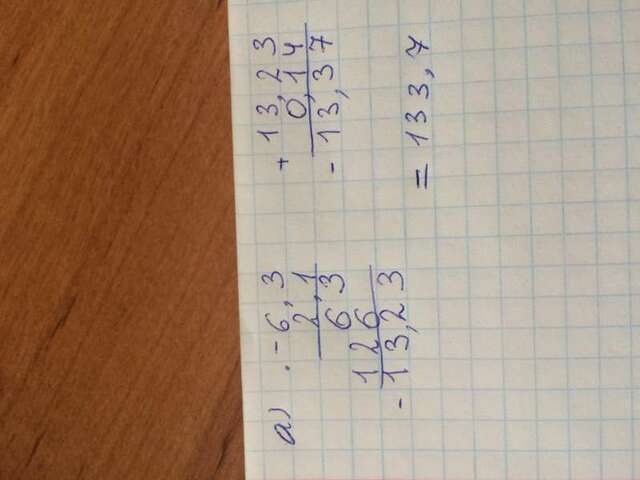 а) · -6,3
2,1
63
126
-13,23
+ 13,23
0,14
-13,37
= 133,7